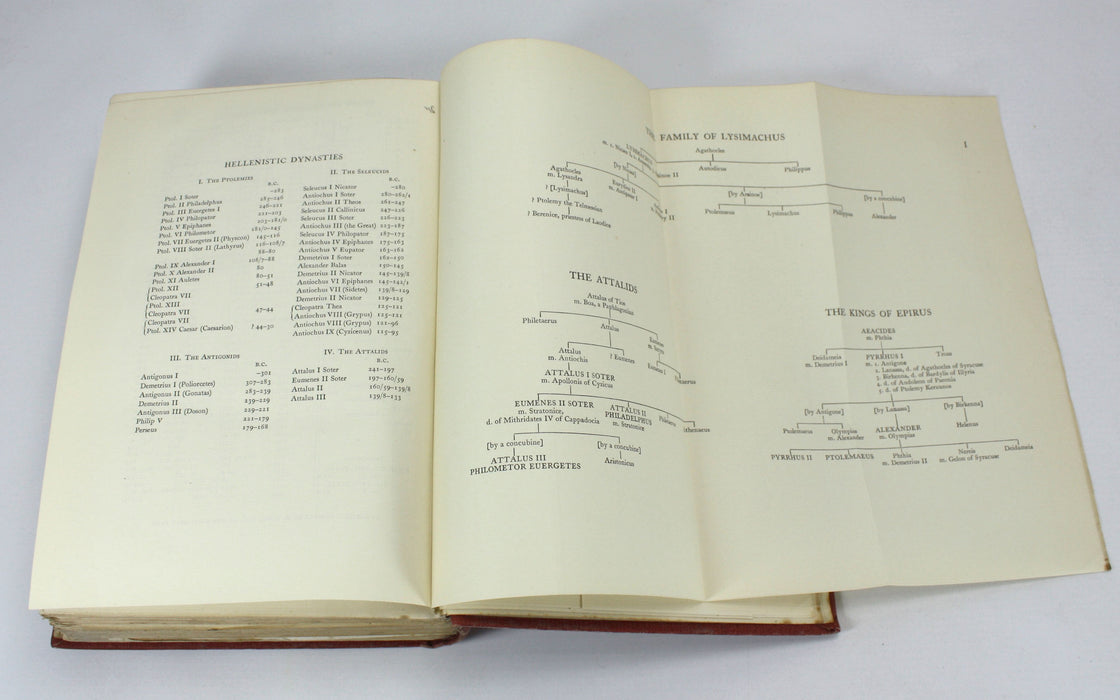 HELLENISTIC DYNASTIES
I. The Ptolemies
B.C.
Ptol. I Soter -283
Ptol. II Philadelphus 285-246
Ptol. III Euergetes I 246-221
Ptol. IV Philopator 221-203
Ptol. V Epiphanes 203-181/0
Ptol. VI Philometor 181/0-145
Ptol. VII Euergetes II (Physcon) 145-116
Ptol. VIII Soter II (Lathyrus) 116-108/7
88-80
Ptol. IX Alexander I 108/7-88
Ptol. X Alexander II 80
Ptol. XI Auletes 80-51
Ptol. XII 51-48
Cleopatra VII
Ptol. XIII
Cleopatra VII 47-44
Cleopatra VII
Ptol. XIV Caesar (Caesarion) ? 44-30
II. The Seleucids
B.C.
Seleucus I Nicator -280
Antiochus I Soter 280-262/1
Antiochus II Theos 261-247
Seleucus II Callinicus 247-226
Seleucus III Soter 226-223
Antiochus III (the Great) 223-187
Seleucus IV Philopator 187-175
Antiochus IV Epiphanes 175-163
Antiochus V Eupator 163-162
Demetrius I Soter 162-150
Alexander Balas 150-145
Demetrius II Nicator 145-139/8
Antiochus VI Epiphanes 145-142/1
Antiochus VII (Sidetes) 139/8-129
Demetrius II Nicator 129-125
Cleopatra Thea 125-121
Antiochus VIII (Grypus) 125-121
Antiochus VIII (Grypus) 121-96
Antiochus IX (Cyzicenus) 115-95
III. The Antigonids
B.C.
Antigonus I -301
Demetrius I (Poliorcetes) 307-283
Antigonus II (Gonatas) 283-239
Demetrius II 239-229
Antigonus III (Doson) 229-221
Philip V 221-179
Perseus 179-168
IV. The Attalids
B.C.
Attalus I Soter 241-197
Eumenes II Soter 197-160/59
Attalus II 160/59-139/8
Attalus III 139/8-133
FAMILY OF LYSIMACHUS
1
Agathocles
Autodicus Philippus
Agathocles
m. Lysandra
[by Nicaea]
Eurydice II
m. Antipater I
[by Arsinoe]
[by a concubine]
? [Lysimachus]
Ptolemaeus Lysimachus Philippus Alexander
? Ptolemy the Telmessian
? Berenice, priestess of Laodice
THE ATTALIDS
Attalus of Tios
m. Boa, a Paphlagonian
Philetaerus Attalus Eumenes
Attalus
m. Antiochis
? Eumenes
Eumenes I
ATTALUS I SOTER
m. Apollonis of Cyzicus
EUMENES II SOTER
m. Stratonice,
d. of Mithridates IV of Cappadocia
ATTALUS II
PHILADELPHUS
m. Stratonice
[by a concubine]
[by a concubine]
ATTALUS III
PHILOMETOR EUERGETES
Aristonicus
THE KINGS OF EPIRUS
AEACIDES
m. Phthia
Deidameia
m. Demetrius I
PYRRHUS I
m. 1. Antigone
2. Lanassa, d. of Agathocles of Syracuse
3. Birkenna, d. of Bardylis of Illyria
4. d. of Audoleon of Paeonia
5. d. of Ptolemy Keraunos
Troas
[by Antigone] [by Lanassa] [by Birkenna]
Ptolemaeus
Olympias
m. Alexander
ALEXANDER
m. Olympias
Helenus
PYRRHUS II PTOLEMAEUS
Phthia
m. Demetrius II
Nereis
m. Gelon of Syracuse
Deidameia